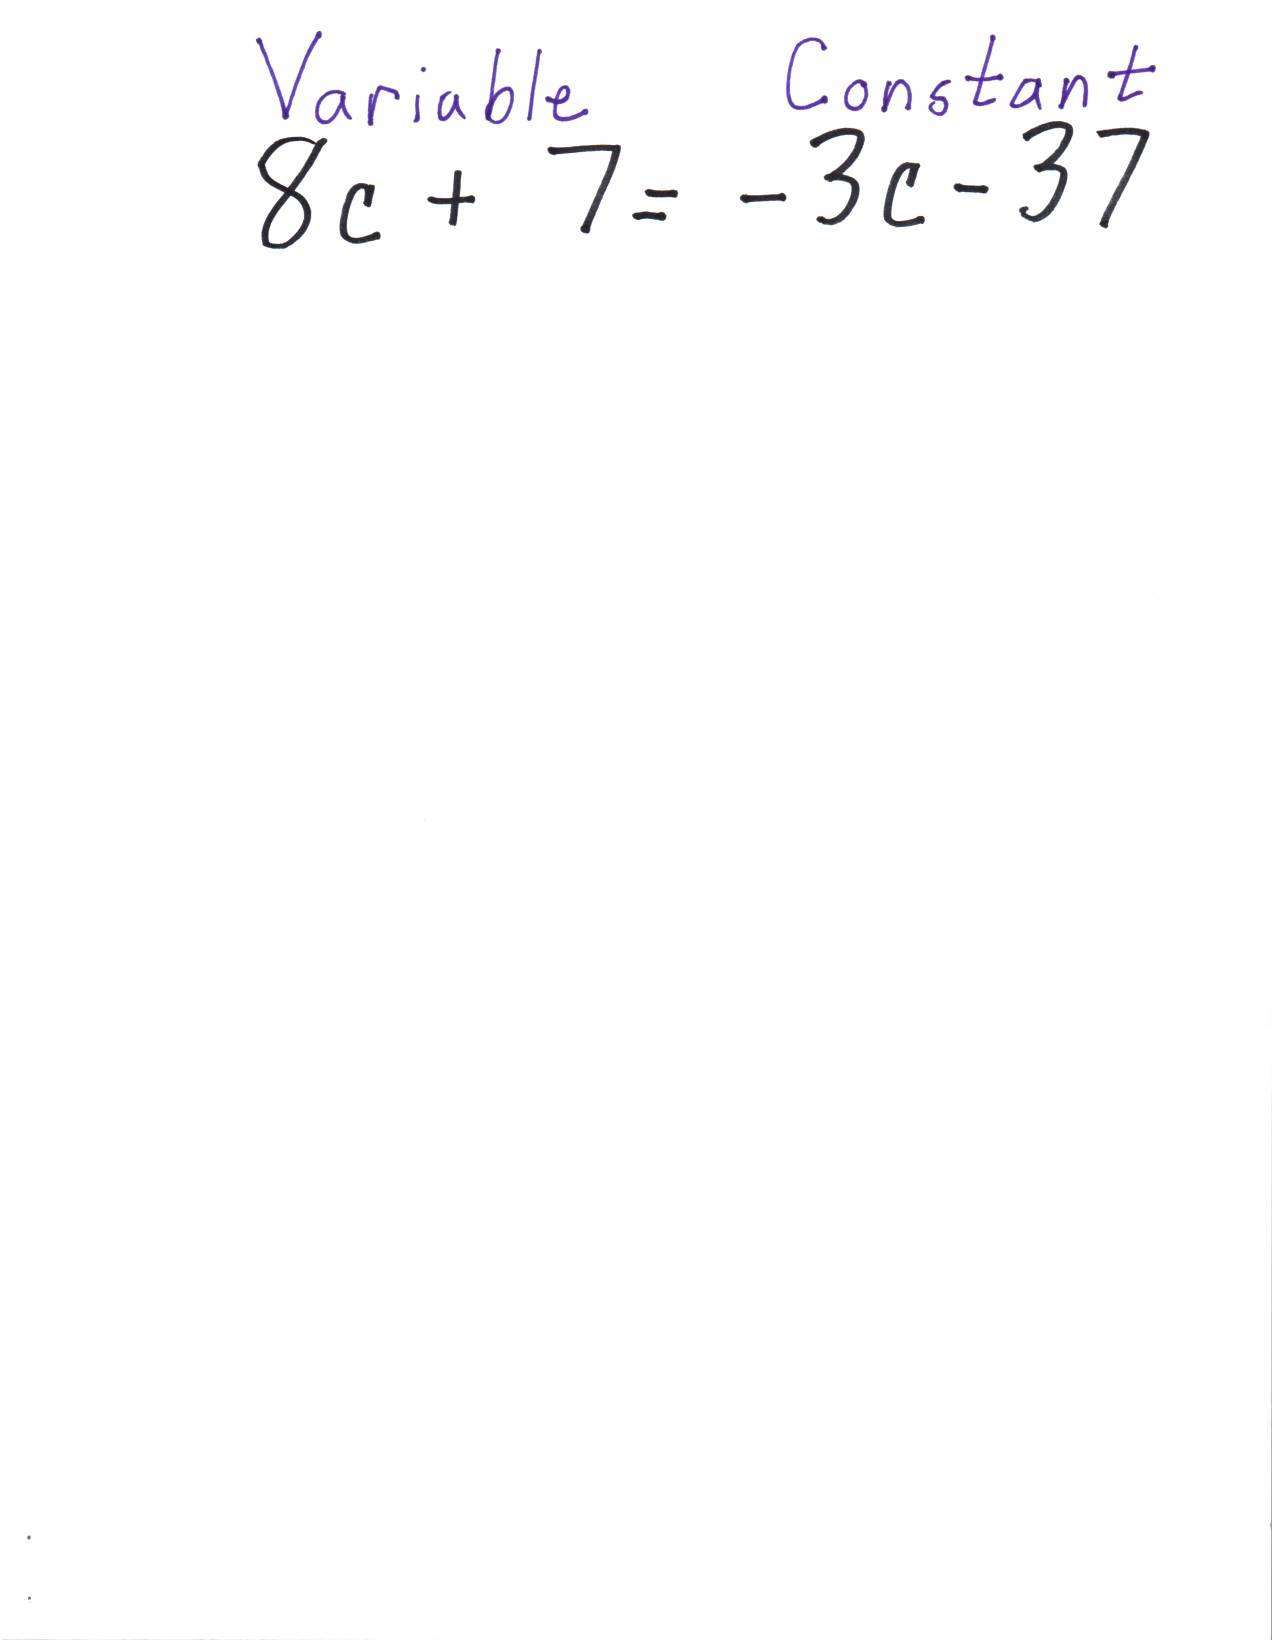 Variable Constant
8c + 7 = -3c - 37